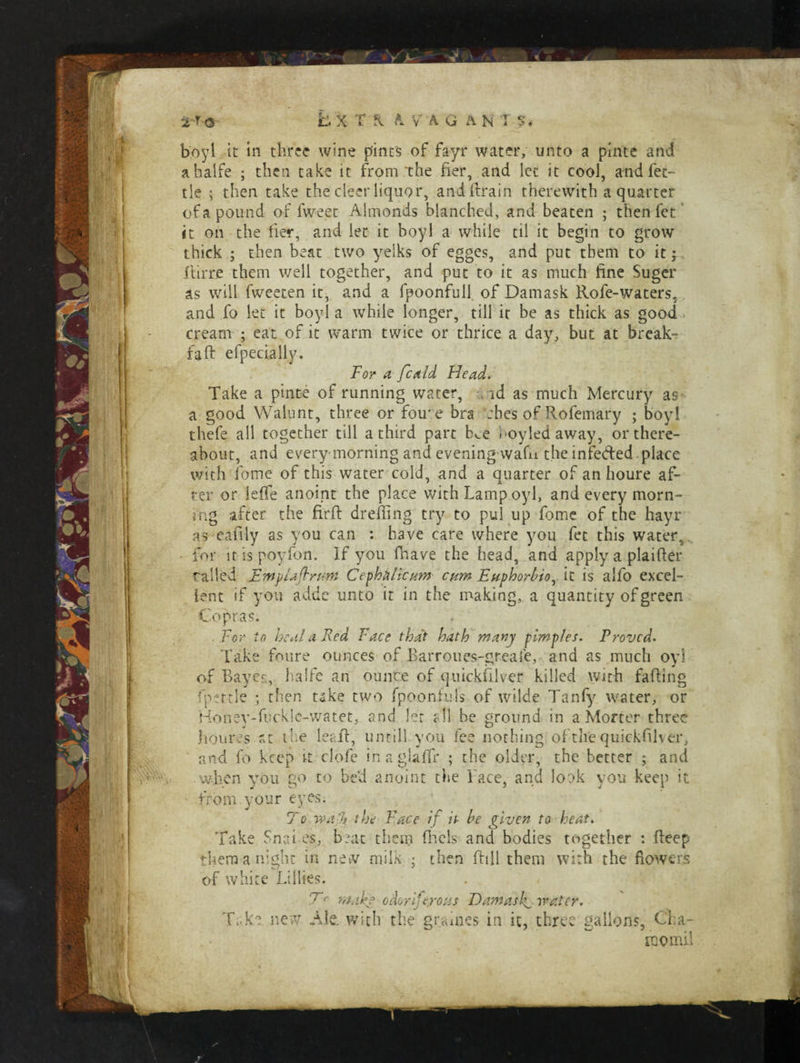 210 EXTRAVAGANTS.
boyl it in three wine pints of fayr water, unto a pinte and
a halfe ; then take it from the fier, and let it cool, and fet-
tle ; then take the cleer liquor, and ſtrain therewith a quarter
of a pound of ſweet Almonds blanched, and beaten ; then ſet
it on the fier, and let it boyl a while til it begin to grow
thick ; then beat two yelks of egges, and put them to it ;
ſtirre them well together, and put to it as much fine Suger
as will ſweeten it, and a ſpoonfull of Damask Roſe-waters,
and ſo let it boyl a while longer, till it be as thick as good
cream ; eat of it warm twice or thrice a day, but at break-
faſt eſpecially.
For a ſcald Head.
Take a pinte of running water, and as much Mercury as
a good Walunt, three or foure branches of Roſemary ; boyl
theſe all together till a third part bee boyled away, or there-
about, and every morning and evening waſh the infected place
with ſome of this water cold, and a quarter of an houre af-
ter or leſſe anoint the place with Lamp oyl, and every morn-
ing after the firſt dreſſing try to pul up ſome of the hayr
as eaſily as you can : have care where you ſet this water,
for it is poyſon. If you ſhave the head, and apply a plaiſter
called Emplaſtrum Cephalicum cum Euphorbio, it is alſo excel-
lent if you adde unto it in the making, a quantity of green
Copras.
For to heal a Red Face that hath many pimples. Proved.
Take foure ounces of Barroues-greaſe, and as much oyl
of Bayes, halfe an ounce of quickſilver killed with faſting
ſpettle ; then take two ſpoonfuls of wilde Tanſy water, or
Honey-ſuckle-watet, and let all be ground in a Morter three
houres at the leaſt, untill you ſee nothing of the quickſilver,
and ſo keep it cloſe in a glaſſr ; the older, the better ; and
when you go to bed anoint the Face, and look you keep it
from your eyes.
To waſh the Face if it be given to heat.
Take Snailes, beat them ſhels and bodies together : ſteep
them a night in new milk ; then ſtill them with the flowers
of white Lillies.
To make odoriferous Damask water.
Take new Ale with the graines in it, three gallons, Cha-
momil